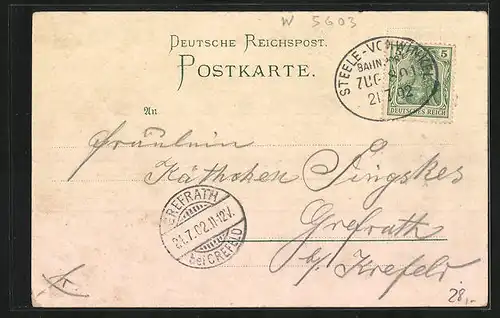 W 5603
DEUTSCHE REICHSPOST.
POSTKARTE.
STEELE-VOHWINKEL
BAHNPOST
ZUG
21.7.02
5
DEUTSCHES REICH
An
Fräulein
Käthchen Jingskes
Grefrath
b/ Krefeld
GREFRATH
21.7.02.11-12V.
bei CREFELD
fr.
28,-